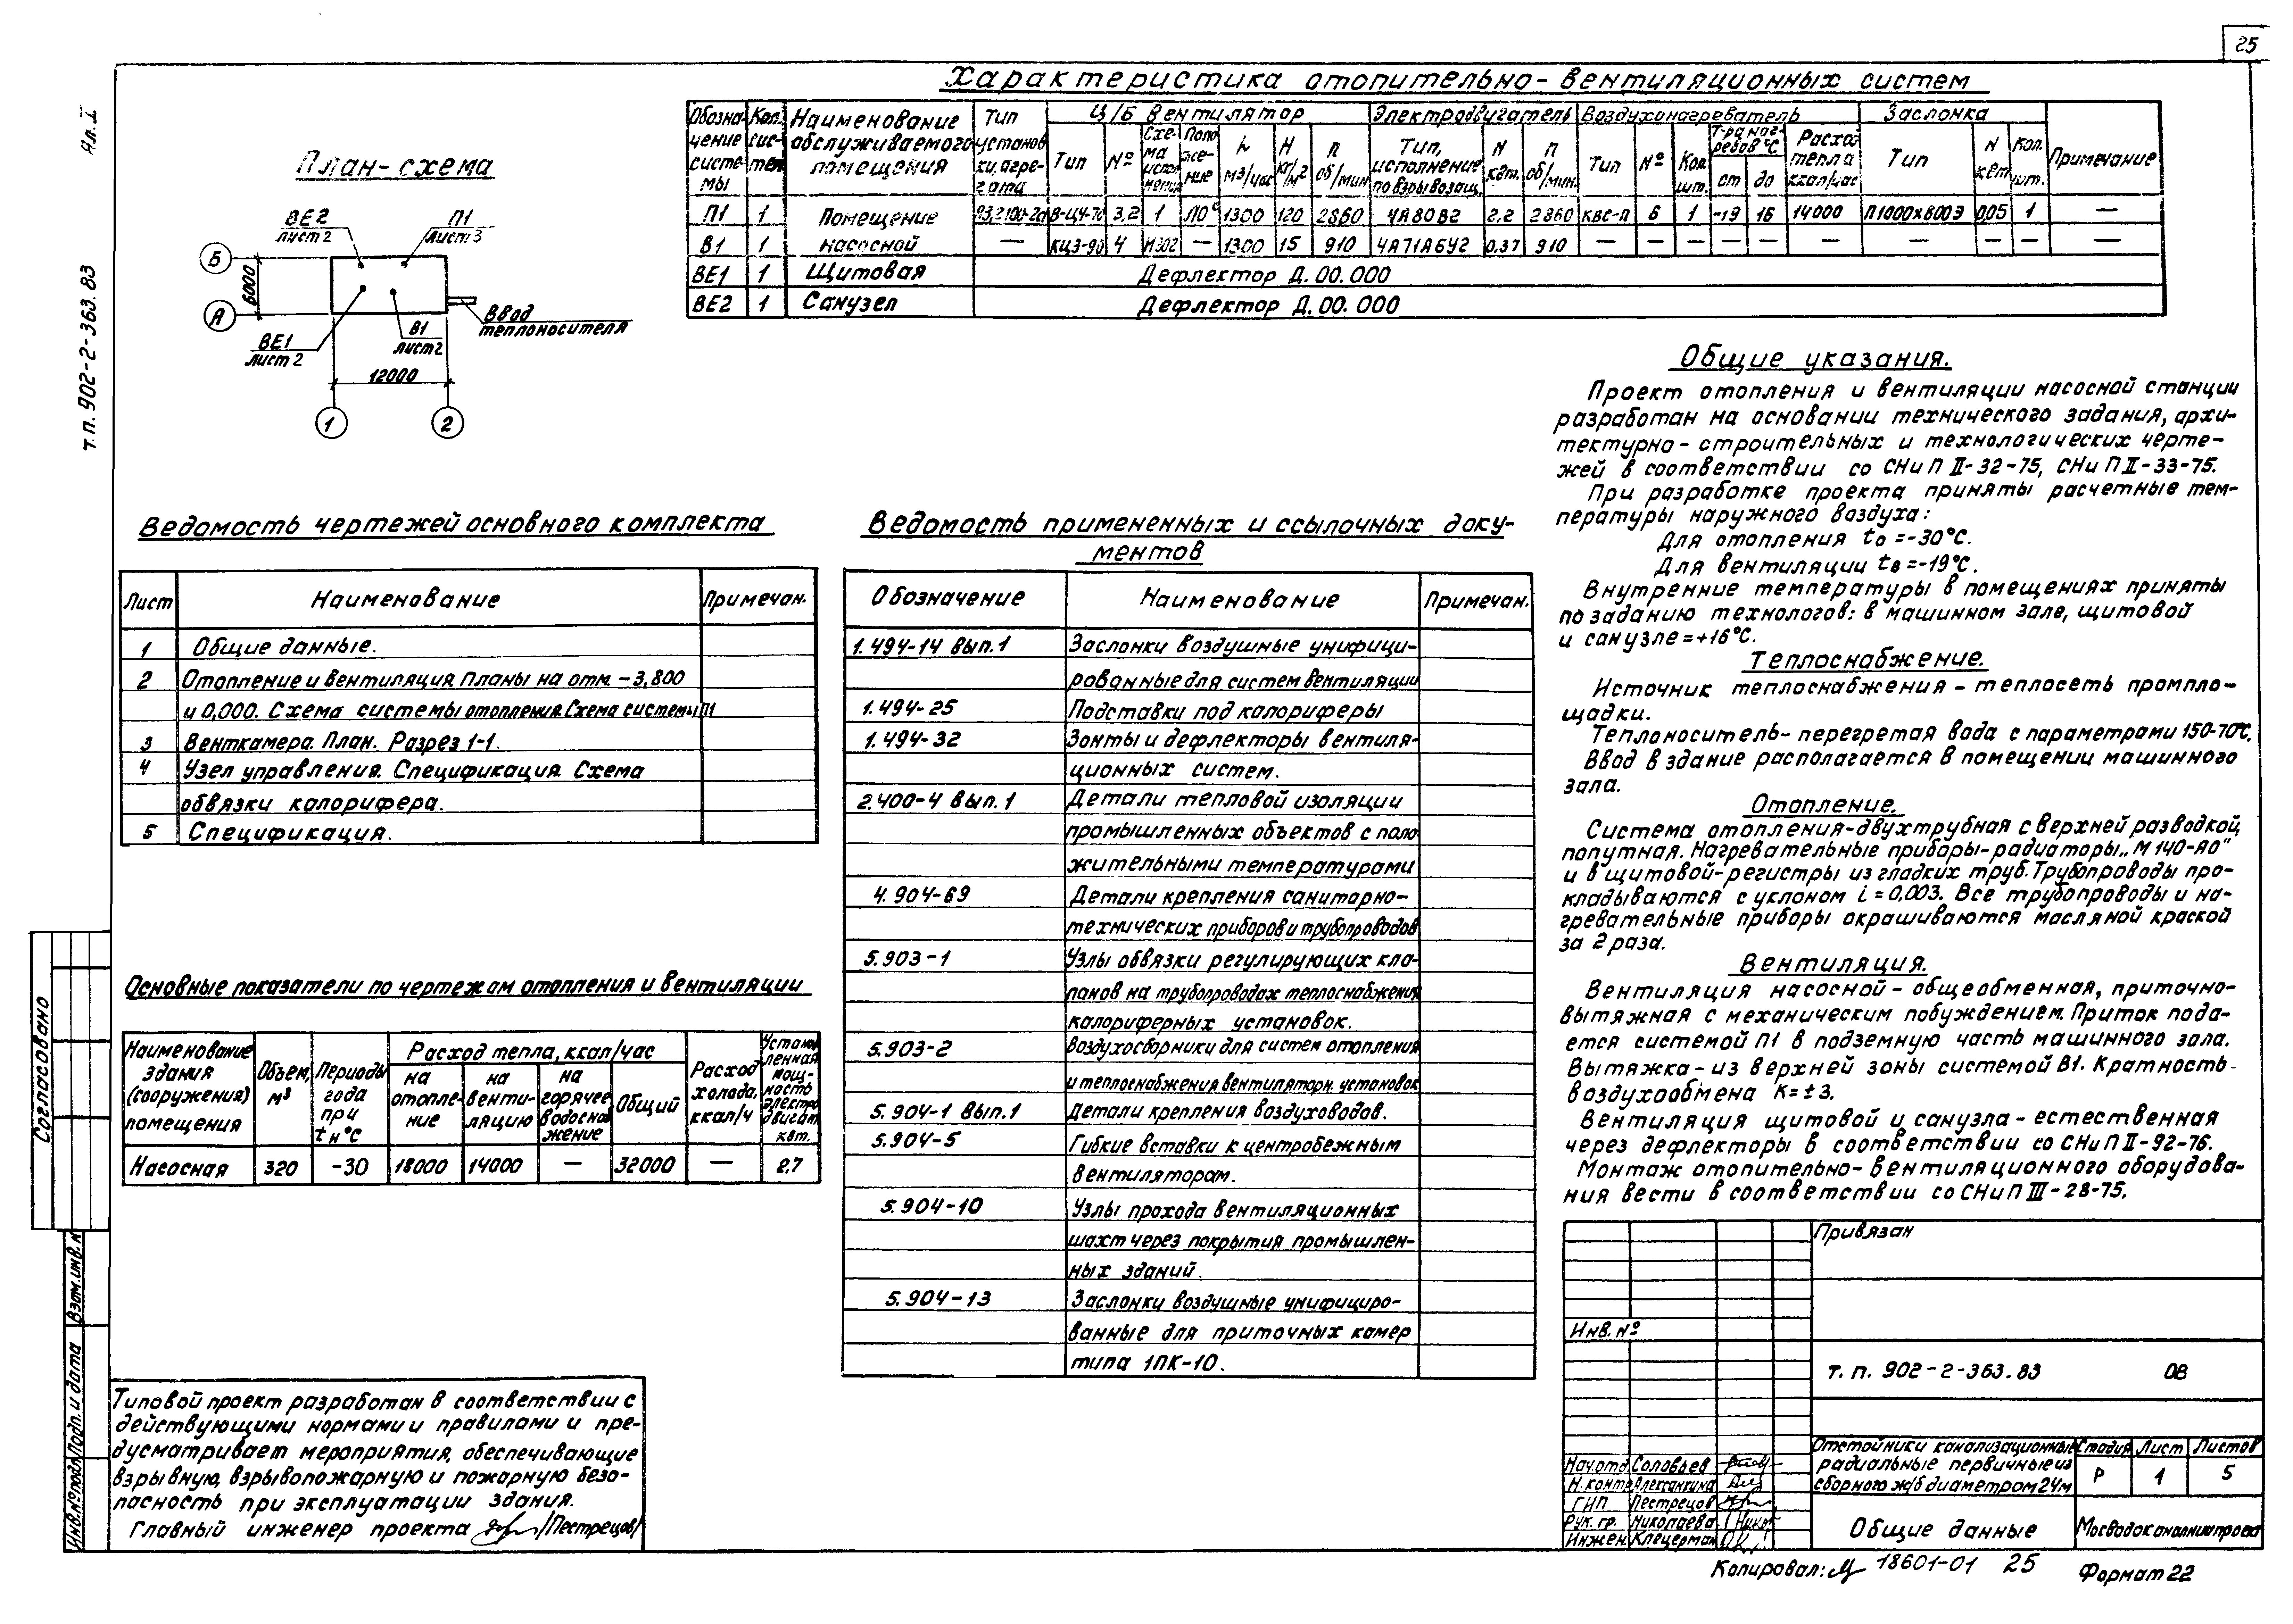 25
Ал. I
т.п. 902-2-363.83
План-схема
ВЕ2
лист 2
П1
Лист 3
Б
А
6000
Ввод
теплоносителя
ВЕ1
лист 2
В1
лист 2
12000
1
2
Характеристика отопительно-вентиляционных систем
Обозна-чение систе-мы | Кол. сис-тем | Наименование обслуживаемого помещения | Тип установ ки, агре-гата | Ц/Б вентилятор | Электродвигатель | Воздухонагреватель | Заслонка | Примечание
Тип | № | Схе-ма испол нения | Поло же-ние | L м3/час | Н кг/м2 | п об/мин | Тип, исполнение по взрывозащ. | N квт. | п об/мин. | Тип | № | Кол. шт. | Т-ра наг-рева в °С от до | Расход тепла ккал/час | Тип | N квт | Кол. шт.
П1 | 1 | Помещение | В-Ц4-70 | 3,2 | 1 | Л0° | 1300 | 120 | 2860 | 4А80В2 | 2.2 | 2860 | КВС-П | 6 | 1 | -19 | 16 | 14000 | П1000х600Э | 0,05 | 1 | —
В1 | 1 | насосной | — | КЦ3-90 | 4 | — | 1300 | 15 | 910 | 4А71А6У2 | 0.37 | 910 | — | — | — | — | — | — | — | — | — | —
ВЕ1 | 1 | Щитовая | Дефлектор Д.00.000
ВЕ2 | 1 | Санузел | Дефлектор Д.00.000
Общие указания.
Проект отопления и вентиляции насосной станции
разработан на основании технического задания, архи-
тектурно-строительных и технологических черте-
жей в соответствии со СНиП II-32-75, СНиП II-33-75.
При разработке проекта приняты расчетные тем-
пературы наружного воздуха:
Для отопления tо =-30°С.
Для вентиляции tв=-19°С.
Внутренние температуры в помещениях приняты
по заданию технологов: в машинном зале, щитовой
и санузле=+16°С.
Теплоснабжение.
Источник теплоснабжения - теплосеть промпло-
щадки.
Теплоноситель- перегретая вода с параметрами 150-70°С.
Ввод в здание располагается в помещении машинного
зала.
Отопление.
Система отопления-двухтрубная с верхней разводкой,
попутная. Нагревательные приборы-радиаторы „М 140-АО"
и в щитовой-регистры из гладких труб. Трубопроводы про-
кладываются с уклоном i=0,003. Все трубопроводы и на-
гревательные приборы окрашиваются масляной краской
за 2 раза.
Вентиляция.
Вентиляция насосной - общеобменная, приточно-
вытяжная с механическим побуждением. Приток пода-
ется системой П1 в подземную часть машинного зала.
Вытяжка-из верхней зоны системой В1. Кратность
воздухообмена К=±3.
Вентиляция щитовой и санузла - естественная
через дефлекторы в соответствии со СНиП II-92-76.
Монтаж отопительно-вентиляционного оборудова-
ния вести в соответствии со СНиП III-28-75.
Ведомость чертежей основного комплекта
Лист | Наименование | Примечан.
1 | Общие данные.
2 | Отопление и вентиляция. Планы на отм. -3,800
и 0,000. Схема системы отопления. Схема системы П1
3 | Венткамера. План. Разрез 1-1.
4 | Узел управления. Спецификация. Схема
обвязки калорифера.
5 | Спецификация.
Ведомость примененных и ссылочных доку-
ментов
Обозначение | Наименование | Примечан.
1.494-14 вып.1 | Заслонки воздушные унифици-
рованные для систем вентиляции
1.494-25 | Подставки под калориферы
1.494-32 | Зонты и дефлекторы вентиля-
ционных систем.
2.400-4 вып.1 | Детали тепловой изоляции
промышленных объектов с поло
жительными температурами
4.904-69 | Детали крепления санитарно-
технических приборов и трубопроводов
5.903-1 | Узлы обвязки регулирующих кла-
панов на трубопроводах теплоснабжения
калориферных установок.
5.903-2 | Воздухосборники для систем отопления
и теплоснабжения вентиляторн. установок
5.904-1 вып.1 | Детали крепления воздуховодов.
5.904-5 | Гибкие вставки к центробежным
вентиляторам.
5.904-10 | Узлы прохода вентиляционных
шахт через покрытия промышлен-
ных зданий.
5.904-13 | Заслонки воздушные унифициро-
ванные для приточных камер
типа 1ПК-10.
Основные показатели по чертежам отопления и вентиляции
Наименование здания (сооружения) помещения | Объем, м3 | Периоды года при tн°С | Расход тепла, ккал/час | Расход холода, ккал/ч | Установ ленная мощ-ность электро двигат. квт.
на отопле-ние | на венти-ляцию | на горячее водоснаб жение | Общий
Насосная | 320 | -30 | 18000 | 14000 | — | 32000 | — | 2.7
Согласовано
Взам.инв.№
Подп. и дата
Инв.№ подл.
Типовой проект разработан в соответствии с
действующими нормами и правилами и пре-
дусматривает мероприятия, обеспечивающие
взрывную, взрывопожарную и пожарную безо-
пасность при эксплуатации здания.
Главный инженер проекта /Пестрецов/
Привязан
Инв.№
т.п. 902-2-363.83 ОВ
Нач.отд. Соловьев
Н.контр.
ГИП Пестрецов
Рук. гр. Николаева
Инжен. Клецерман
Отстойники канализационные
радиальные первичные из
сборного ж/б диаметром 24м
Стадия | Лист | Листов
Р | 1 | 5
Общие данные
Мосводоканалниипроект
Копировал: 18601-01 25 Формат 22